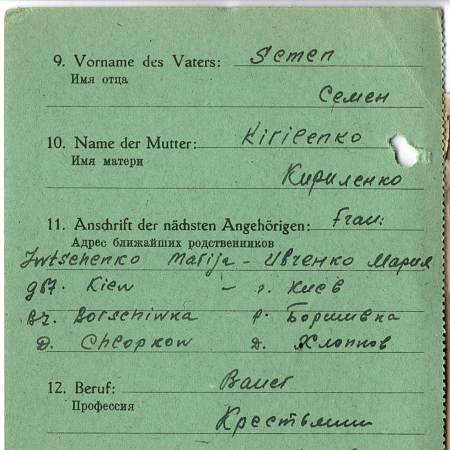 9. Vorname des Vaters: Semen
Имя отца
Семен
10. Name der Mutter: Kirilenko
Имя матери
Кириленко
11. Anschrift der nächsten Angehörigen: Frau:
Адрес ближайших родственников
Iwtschenko Marija - Ивченко Мария
gbt. Kiew - г. Киев
Br. Borschiwka р. Боршивка
D. Chlopkow д. Хлопков
12. Beruf: Bauer
Профессия
Крестьянин